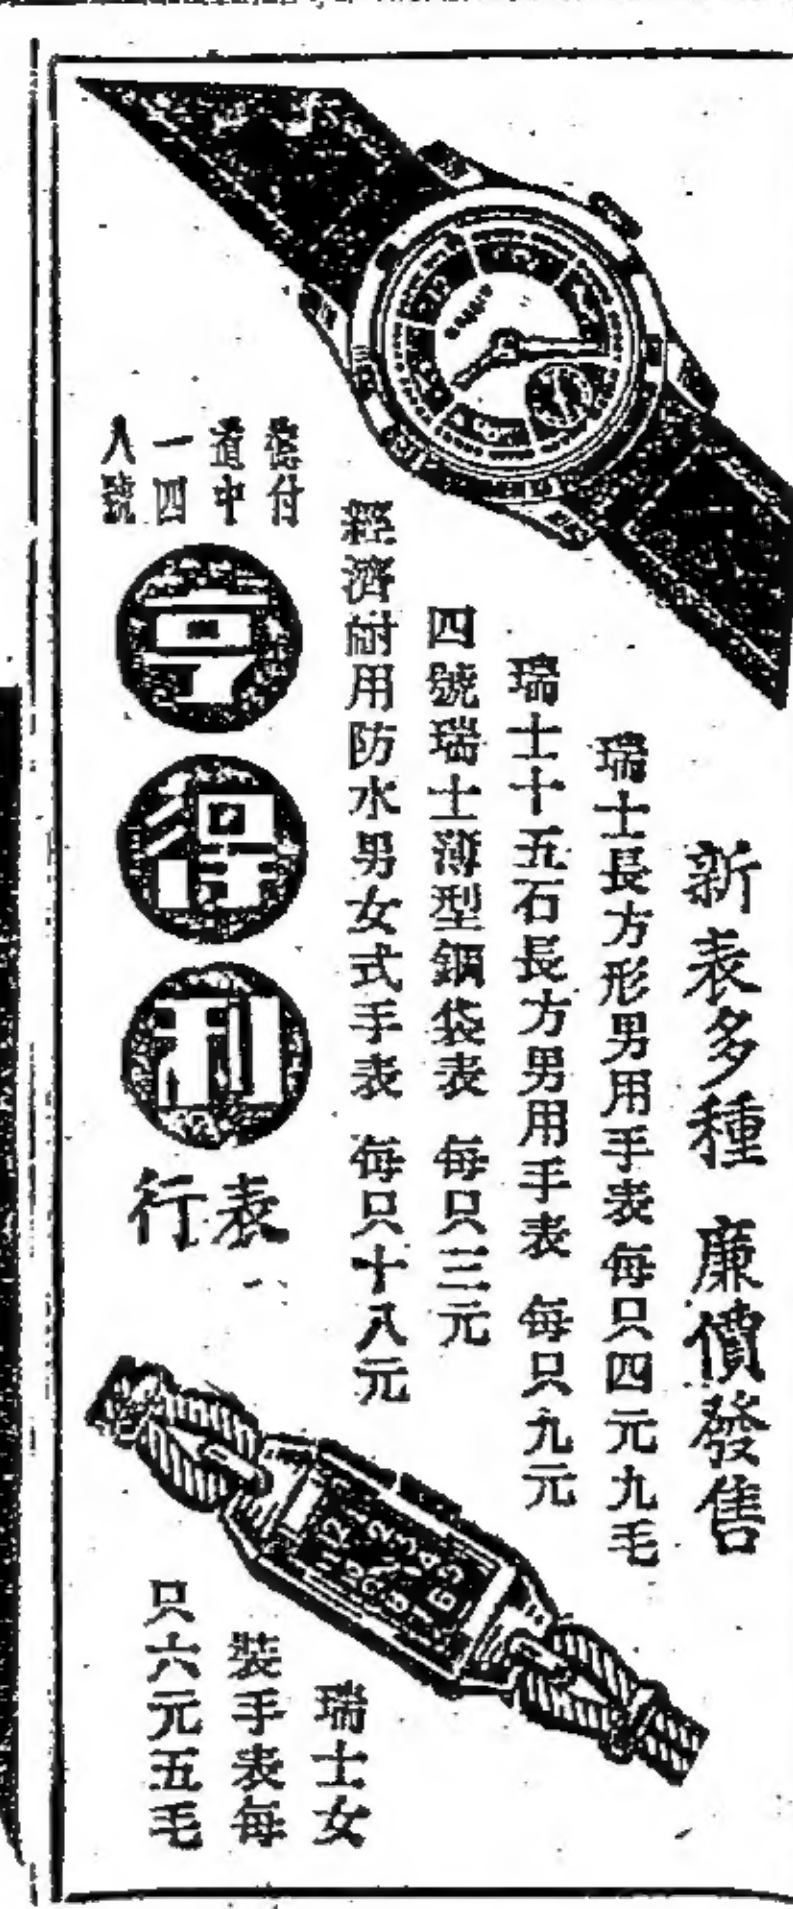 新表多種 廉價發售
瑞士長方形男用手表每只四元九毛
瑞士十五石長方男用手表 每只九元
四號瑞士薄型鋼袋表 每只三元
經濟耐用防水男女式手表 每只十八元
德付
道中
一四
八號
亨得利
表行
瑞士女
裝手表每
只六元五毛